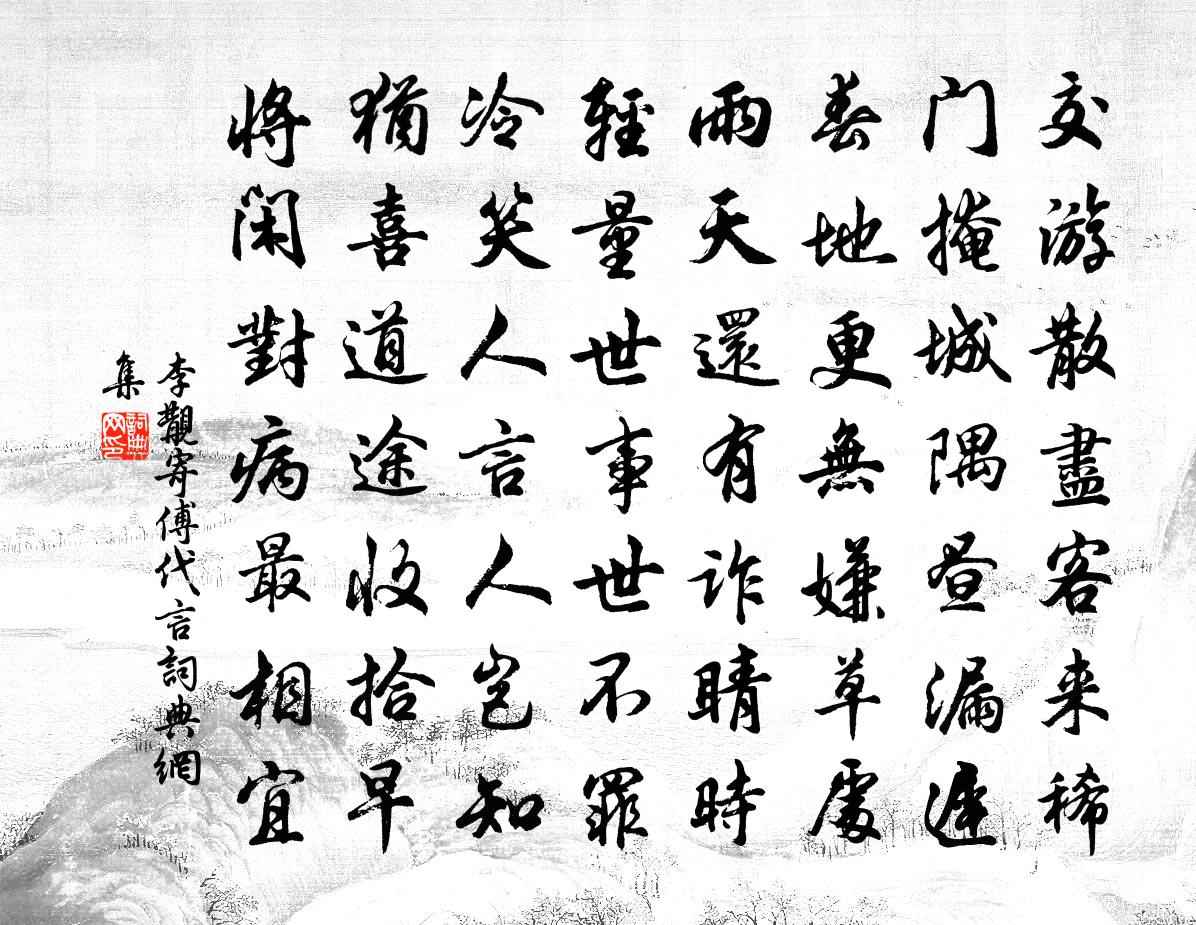 交游散盡客来稀
门掩城隅昼漏遲
春地更無嫌草處
雨天還有詐晴時
輕量世事世不罪
冷笑人言人岂知
猶喜道途收拾早
将閑對病最相宜
李覯寄傅代言詞典網
集
詞典网印